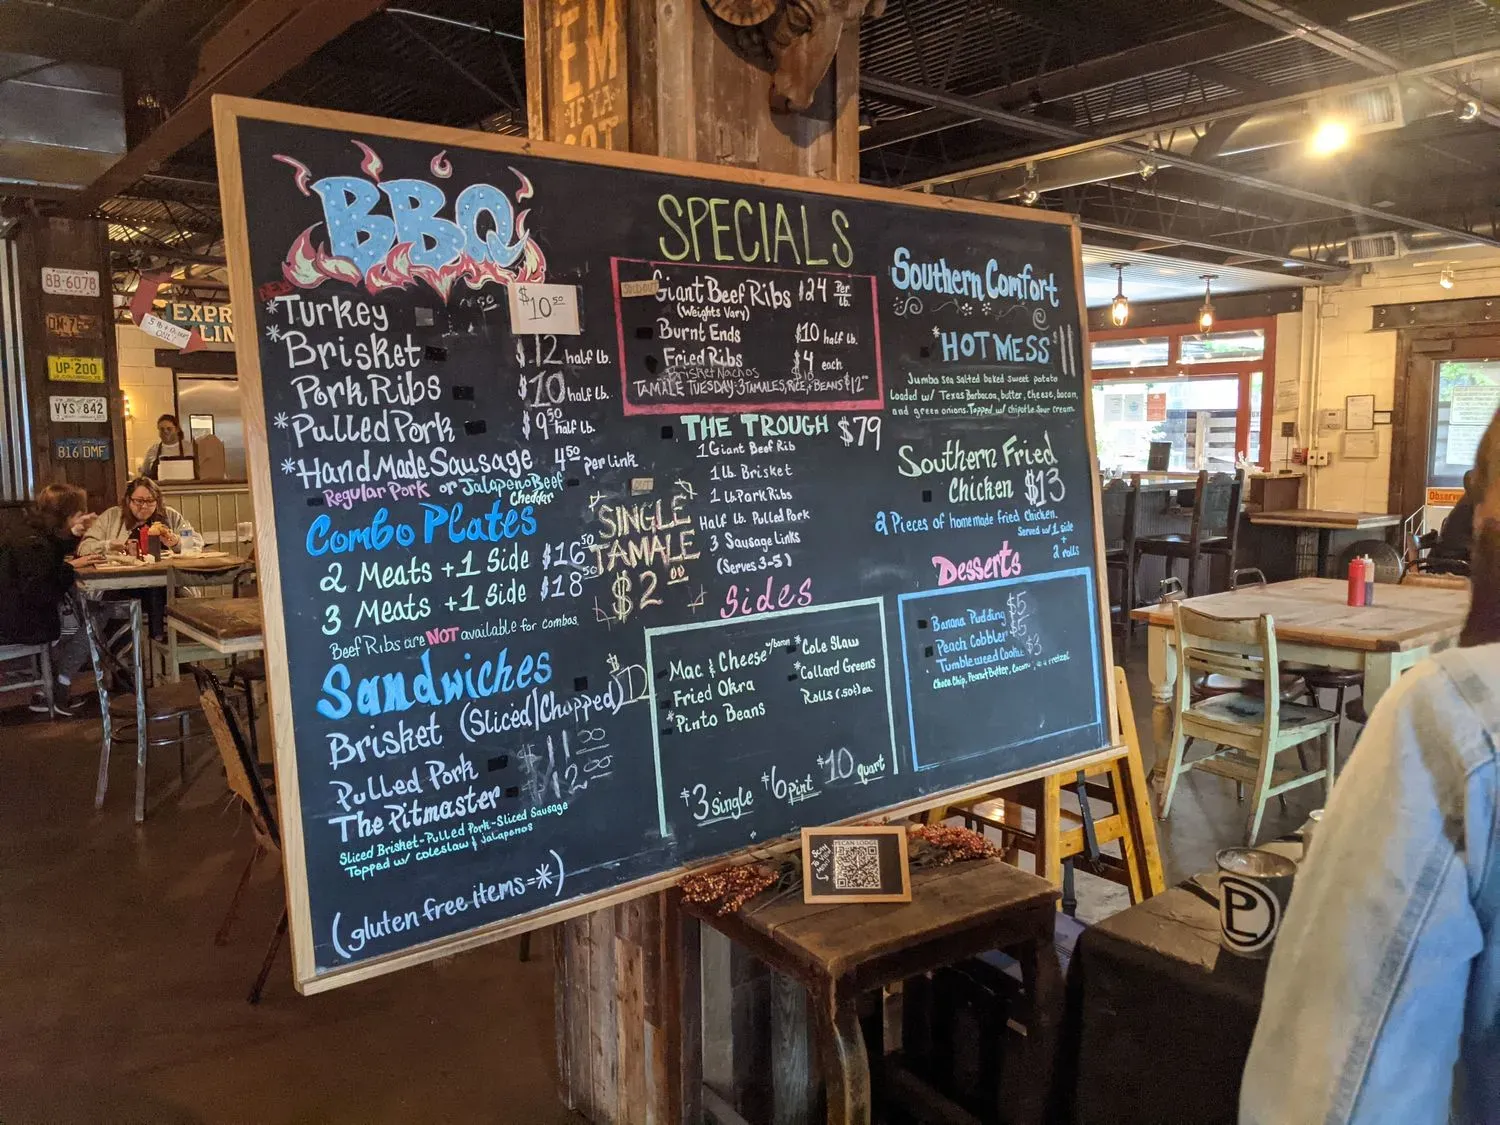 'EM
BBQ
*Turkey
$10.50
Brisket
$12 half lb.
Pork Ribs
$10 half lb.
*Pulled Pork
$9.50 half lb.
*Hand Made Sausage 4.50 per link
Regular Pork or Jalapeno Beef
Cheddar
Combo Plates
2 Meats +1 Side $16.50
3 Meats +1 Side $18.50
Beef Ribs are NOT available for combos.
Sandwiches
Brisket (Sliced/Chopped)
Pulled Pork $11.00
The Pitmaster $12.00
Sliced Brisket-Pulled Pork-Sliced Sausage
Topped w/ coleslaw & jalapenos
(gluten free items=*)
SPECIALS
SOLD OUT
Giant Beef Ribs $24 Per lb.
(Weights Vary)
Burnt Ends $10 half lb.
Fried Ribs $4 each
Brisket Nachos
TAMALE TUESDAY: 3 TAMALES, RICE, & BEANS $12
THE TROUGH $79
1 Giant Beef Rib
1 lb. Brisket
1 lb Pork Ribs
Half lb. Pulled Pork
3 Sausage Links
(Serves 3-5)
SINGLE
TAMALE
$2.00
Sides
Mac & Cheese w/bacon
Fried Okra
*Pinto Beans
*Cole Slaw
*Collard Greens
Rolls (.50¢) ea
$3 single $6 pint $10 quart
Southern Comfort
*HOT MESS $11
Jumbo sea salted baked sweet potato
Loaded w/ Texas Barbacoa, butter, cheese, bacon,
and green onions. Topped w/ chipotle sour cream.
Southern Fried
Chicken $13
2 Pieces of homemade fried chicken.
Served w/ 1 side
+
2 rolls
Desserts
Banana Pudding $5
Peach Cobbler $5
Tumbleweed Cookie $3
Choco Chip, Peanut Butter,
pretzel
SCAN
TO VIEW
PECAN LODGE
8B-6078
UP-200
VYS 842
816 DMF
EXPR
LIN